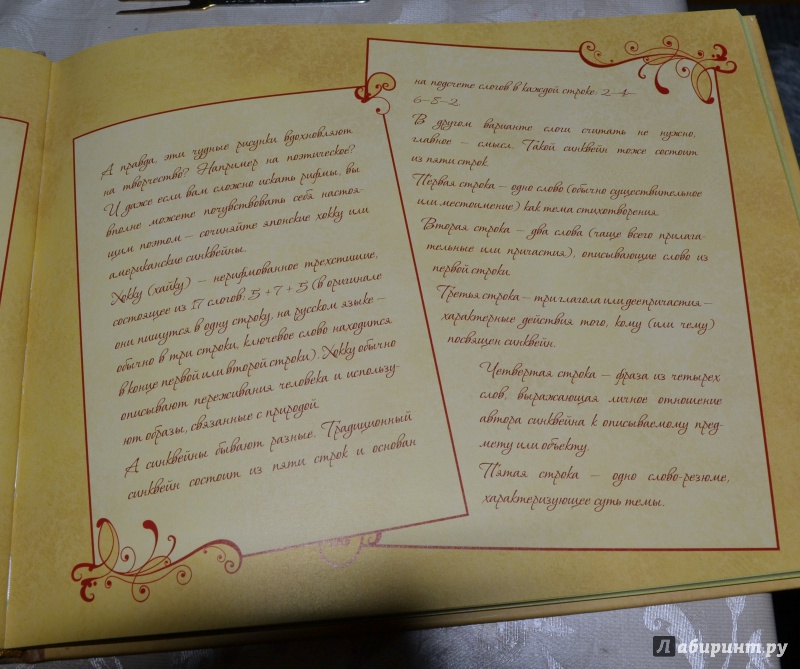 А правда, эти чудные рисунки вдохновляют
на творчество? Например на поэтическое?
И даже если вам сложно искать рифмы, вы
вполне можете почувствовать себя настоя-
щим поэтом — сочиняйте японские хокку или
американские синквейны.
Хокку (хайку) — нерифмованное трехстишие,
состоящее из 17 слогов: 5 + 7 + 5 (в оригинале
они пишутся в одну строку, на русском языке —
обычно в три строки, ключевое слово находится
в конце первой или второй строки). Хокку обычно
описывают переживания человека и использу-
ют образы, связанные с природой.
А синквейны бывают разные. Традиционный
синквейн состоит из пяти строк и основан
на подсчете слогов в каждой строке: 2-4-
6-8-2.
В другом варианте слоги считать не нужно,
главное — смысл. Такой синквейн тоже состоит
из пяти строк.
Первая строка — одно слово (обычно существительное
или местоимение) как тема стихотворения.
Вторая строка — два слова (чаще всего прилага-
тельные или причастия), описывающие слово из
первой строки.
Третья строка — три глагола или деепричастия —
характерные действия того, кому (или чему)
посвящен синквейн.
Четвертая строка — фраза из четырех
слов, выражающая личное отношение
автора синквейна к описываемому пред-
мету или объекту.
Пятая строка — одно слово-резюме,
характеризующее суть темы.
Лабиринт.ру